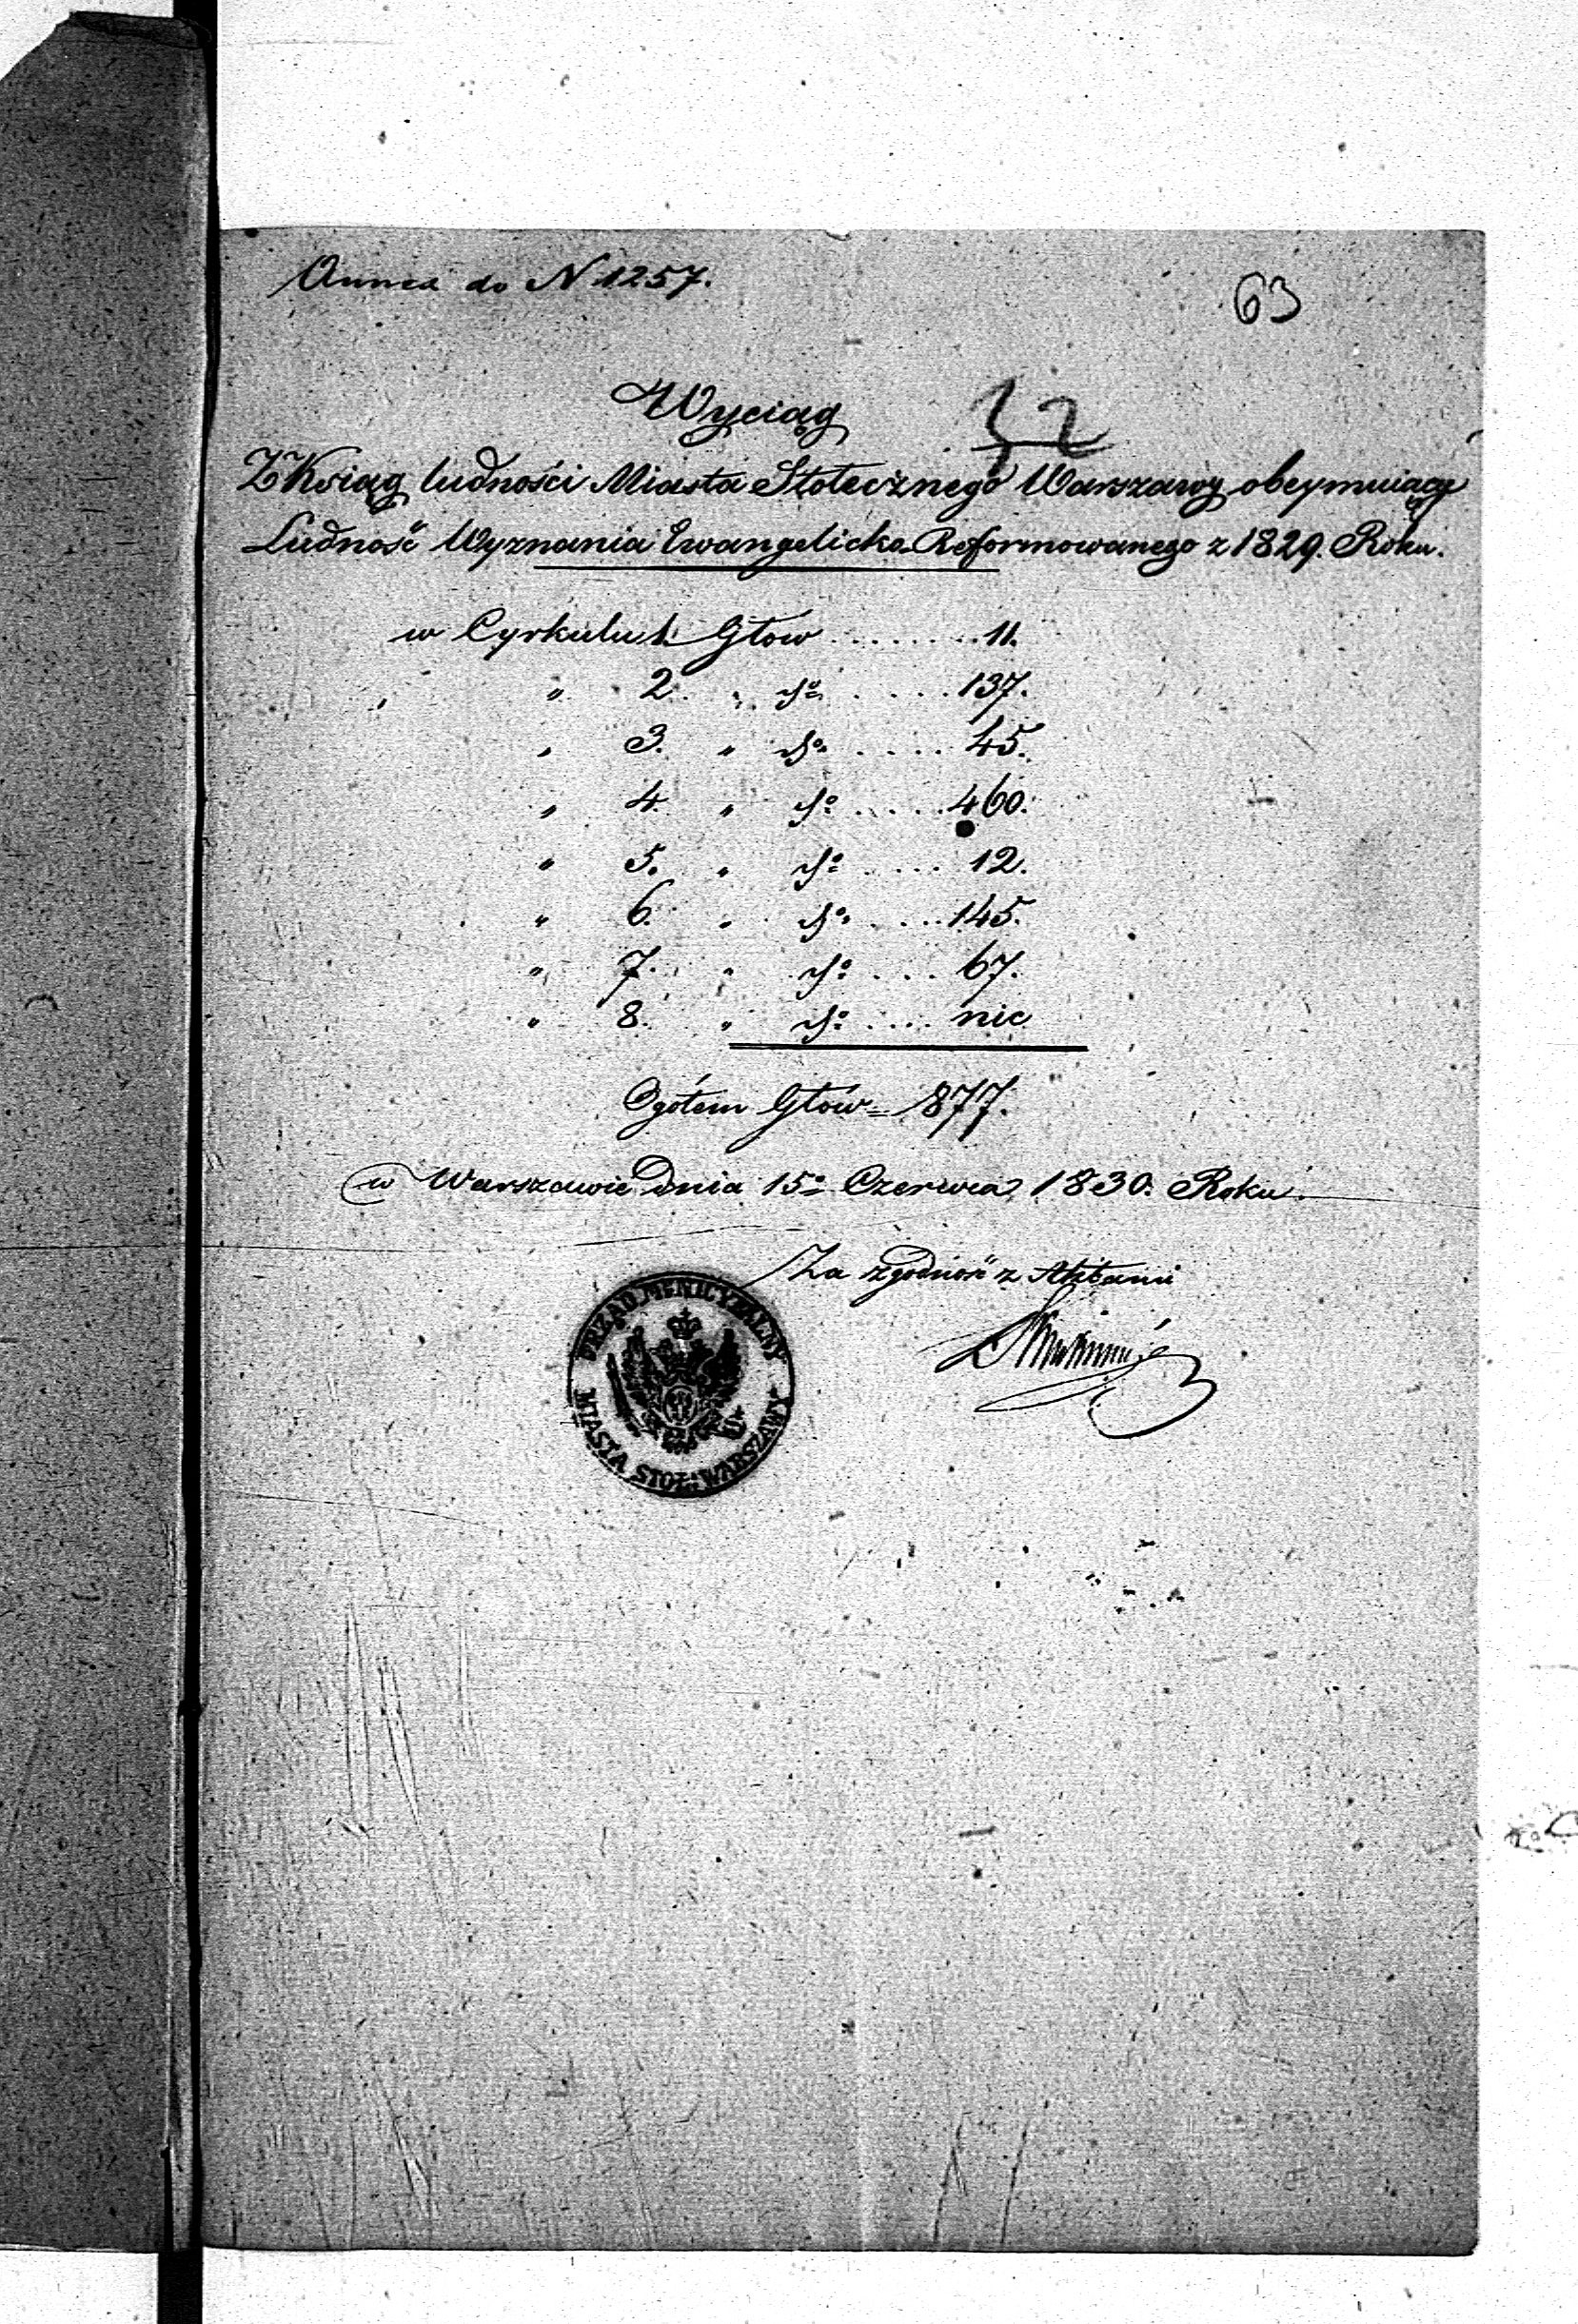 Annex do N 1257.
63
Wyciąg
32
Z Ksiąg ludności Miasta Stołecznego Warszawy obeymuiący
Ludność Wyznania Ewangelicko Reformowanego z 1829. Roku.
w Cyrkulu 1. Głow ........ 11.
" 2. " do ..... 137.
" 3. " do ..... 45.
" 4. " do ..... 460.
" 5. " do ..... 12.
" 6. " do ..... 145.
" 7. " do .... 67.
" 8. " do .... nic
Ogółem Głów = 877.
w Warszawie Dnia 15o Czerwca 1830. Roku.
Za zgodność z Aktami
URZĄD MUNICYPALNY
MIASTA STOŁ: WARSZAWY